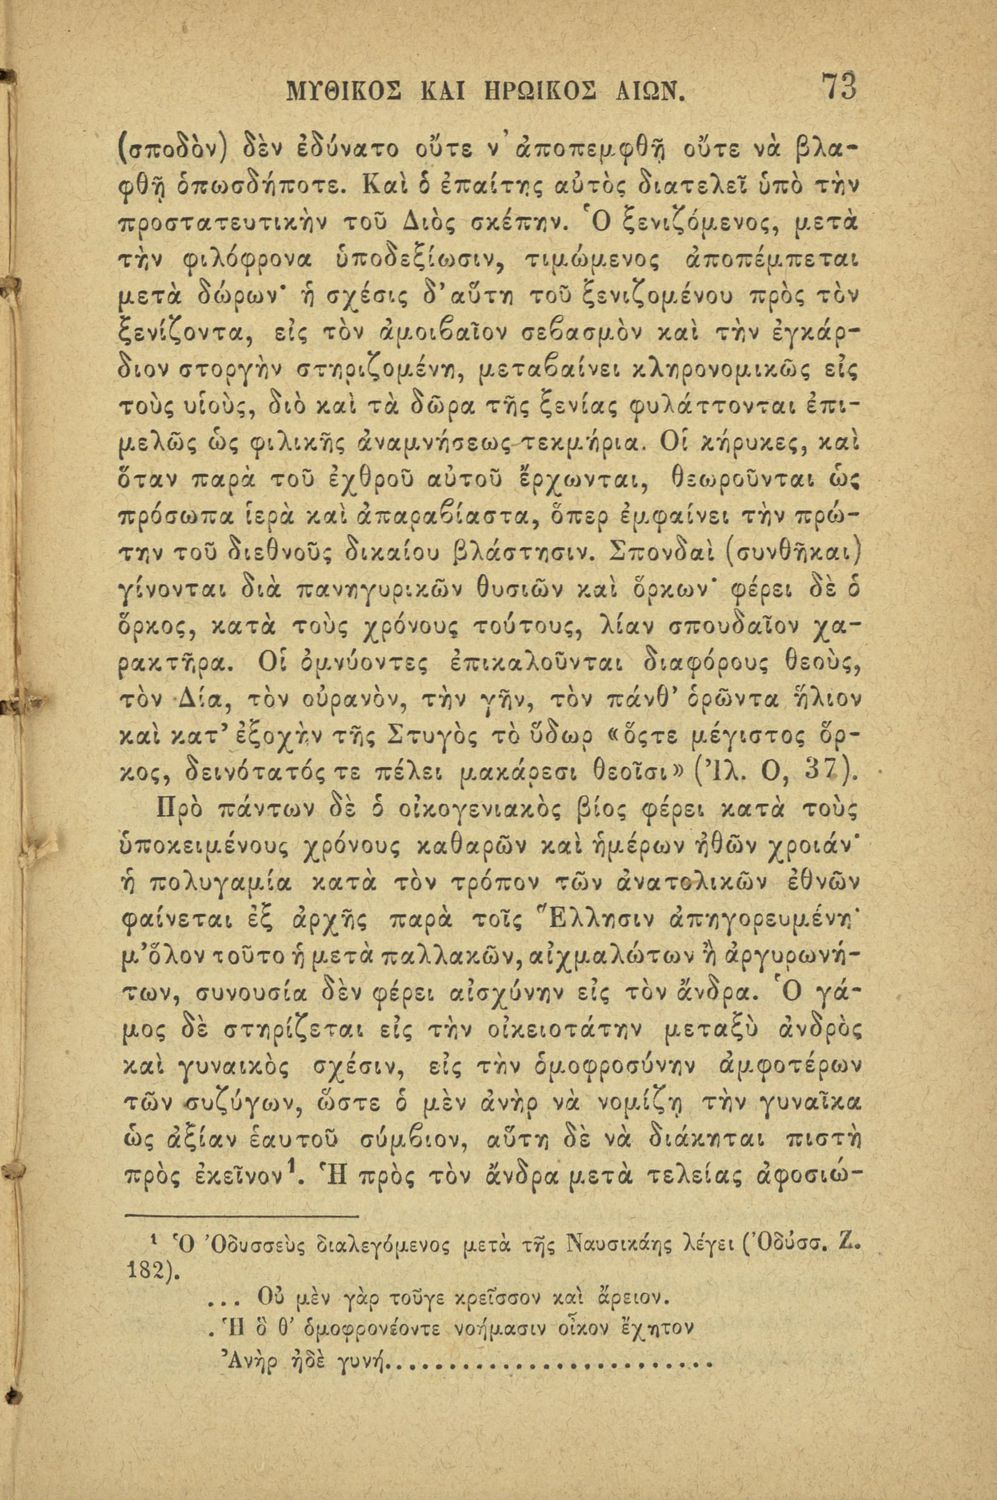 ΜΥΘΙΚΟΣ ΚΑΙ ΗΡΩΙΚΟΣ ΑΙΩΝ. 73
(σποδὸν) δὲν ἐδύνατο οὔτε ν᾿ ἀποπεμφθῇ οὔτε νὰ βλα-
φθῇ ὁπωσδήποτε. Καὶ ὁ ἐπαίτης αὐτὸς διατελεῖ ὑπὸ τὴν
προστατευτικὴν τοῦ Διὸς σκέπην. Ὁ ξενιζόμενος, μετὰ
τὴν φιλόφρονα ὑποδεξίωσιν, τιμώμενος ἀποπέμπεται
μετὰ δώρων· ἡ σχέσις δ᾿ αὕτη τοῦ ξενιζομένου πρὸς τὸν
ξενίζοντα, εἰς τὸν ἀμοιϐαῖον σεϐασμὸν καὶ τὴν ἐγκάρ-
διον στοργὴν στηριζομένη, μεταϐαίνει κληρονομικῶς εἰς
τοὺς υἱοὺς, διὸ καὶ τὰ δῶρα τῆς ξενίας φυλάττονται ἐπι-
μελῶς ὡς φιλικῆς ἀναμνήσεως τεκμήρια. Οἱ κήρυκες, καὶ
ὅταν παρὰ τοῦ ἐχθροῦ αὐτοῦ ἔρχωνται, θεωροῦνται ὡς
πρόσωπα ἱερὰ καὶ ἀπαραϐίαστα, ὅπερ ἐμφαίνει τὴν πρώ-
την τοῦ διεθνοῦς δικαίου βλάστησιν. Σπονδαὶ (συνθῆκαι)
γίνονται διὰ πανηγυρικῶν θυσιῶν καὶ ὅρκων· φέρει δὲ ὁ
ὅρκος, κατὰ τοὺς χρόνους τούτους, λίαν σπουδαῖον χα-
ρακτῆρα. Οἱ ὀμνύοντες ἐπικαλοῦνται διαφόρους θεοὺς,
τὸν Δία, τὸν οὐρανὸν, τὴν γῆν, τὸν πάνθ᾿ ὁρῶντα ἥλιον
καὶ κατ᾿ ἐξοχὴν τῆς Στυγὸς τὸ ὕδωρ «ὅςτε μέγιστος ὅρ-
κος, δεινότατός τε πέλει μακάρεσι θεοῖσι» (Ἰλ. Ο, 37).
Πρὸ πάντων δὲ ὁ οἰκογενιακὸς βίος φέρει κατὰ τοὺς
ὑποκειμένους χρόνους καθαρῶν καὶ ἡμέρων ἠθῶν χροιάν·
ἡ πολυγαμία κατὰ τὸν τρόπον τῶν ἀνατολικῶν ἐθνῶν
φαίνεται ἐξ ἀρχῆς παρὰ τοῖς Ἕλλησιν ἀπηγορευμένη·
μ᾿ ὅλον τοῦτο ἡ μετὰ παλλακῶν, αἰχμαλώτων ἢ ἀργυρωνή-
των, συνουσία δὲν φέρει αἰσχύνην εἰς τὸν ἄνδρα. Ὁ γά-
μος δὲ στηρίζεται εἰς τὴν οἰκειοτάτην μεταξὺ ἀνδρὸς
καὶ γυναικὸς σχέσιν, εἰς τὴν ὁμοφροσύνην ἀμφοτέρων
τῶν συζύγων, ὥστε ὁ μὲν ἀνὴρ νὰ νομίζῃ τὴν γυναῖκα
ὡς ἀξίαν ἑαυτοῦ σύμϐιον, αὕτη δὲ νὰ διάκηται πιστὴ
πρὸς ἐκεῖνον¹. Ἡ πρὸς τὸν ἄνδρα μετὰ τελείας ἀφοσιώ-
¹ Ὁ Ὀδυσσεὺς διαλεγόμενος μετὰ τῆς Ναυσικάης λέγει (Ὀδύσσ. Ζ.
182).
... Οὐ μὲν γὰρ τοῦγε κρεῖσσον καὶ ἄρειον.
. Ἢ ὃ θ᾿ ὁμοφρονέοντε νοήμασιν οἶκον ἔχητον
Ἀνὴρ ἠδὲ γυνή..........................